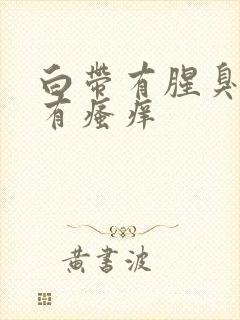 白带有腥臭
有瘙痒
黄书波